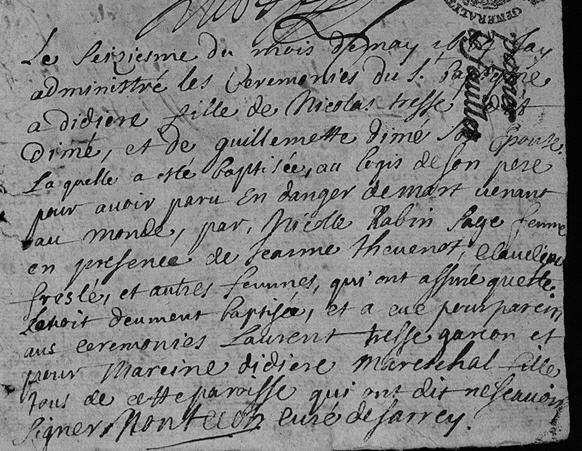 Le Seiziesme du mois de may jay
administré les Ceremonies du S. Baptesme
a didiere fille de Nicolas tresse dit
Dimé, et de guillemette dimé Sa Epouse
Laquelle a esté baptisée, au logis de son pere
pour avoir paru En danger de mort venant
au monde, par, Nicole Rabin Sage femme
en presence de Jeanne Thevenot,
freslé, et autres femmes, qui ont assuré quelle
Lavoit deument baptisée, et a eue pour parein,
aus ceremonies Laurent tresse garcon et
pour Mareine didiere Mareschal fille
tous de cette paroisse qui ont dit ne scavoir
Signer curé de Sarrey.